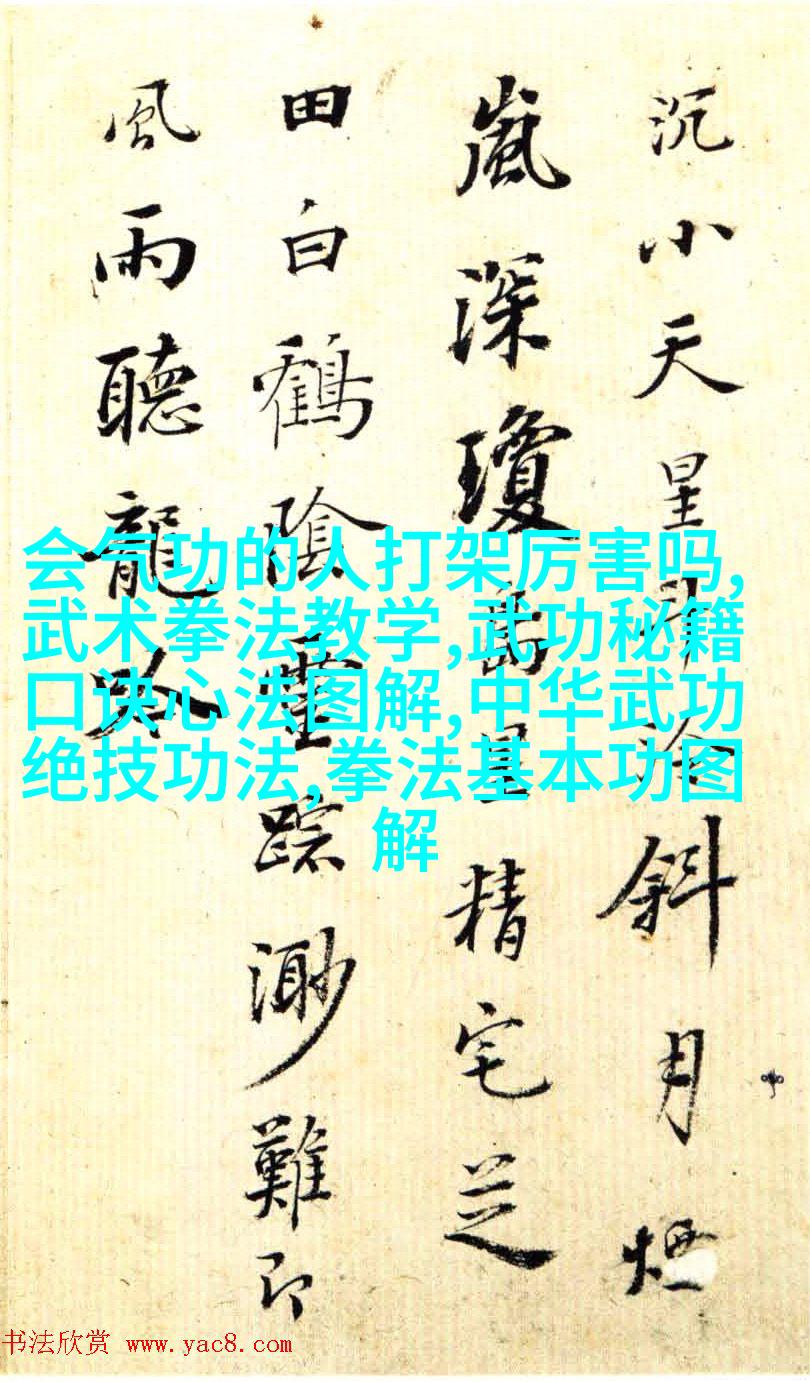 沉小天星斗冷斜月煙
嵐深瓊島星精宅芝
田白鶴陰靈踪渺難即
風雨聽龍吟
会气功的人打架厉害吗,
武术拳法教学,武功秘籍
口诀心法图解,中华武功
绝技功法,拳法基本功图
解
书法欣赏 www.yac8.com